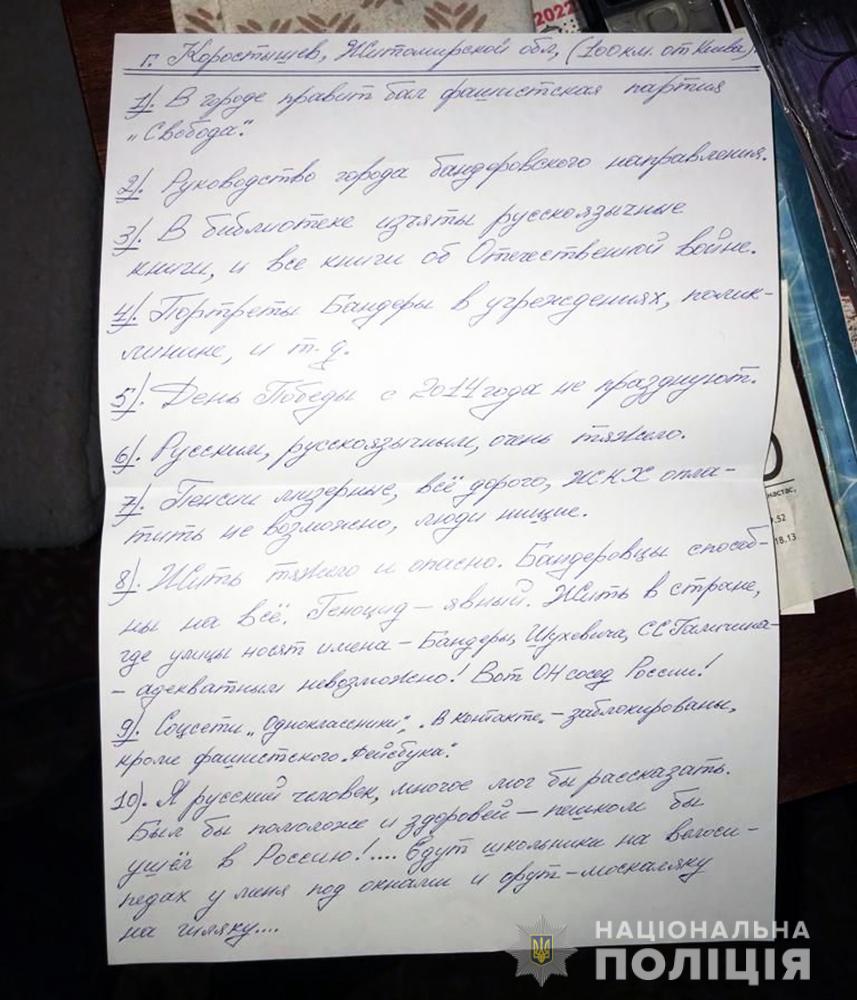 2022
г. Коростышев, Житомирской обл, (100км. от Киева).
1). В городе правит бал фашистская партия
„Свобода".
2). Руководство города бандеровского направления.
3). В библиотеке изъяты русскоязычные
книги, и все книги об Отечественной войне.
4). Портреты Бандеры в учреждениях, полик-
линике, и т.д.
5). День Победы с 2014 года не празднуют.
6). Русским, русскоязычным, очень тяжело.
7). Пенсии мизерные, всё дорого, ЖСКХ опла-
тить не возможно, люди нищие.
8). Жить тяжело и опасно. Бандеровцы способ-
ны на всё. Геноцид – явный. Жить в стране,
где улицы носят имена – Бандеры, Шухевича, СС Галичина –
– адекватным невозможно! Вот ОН сосед России!
9). Соцсети „Одноклассники", „В контакте" – заблокированы,
кроме фашистского „Фейсбука".
10). Я русский человек, многое мог бы рассказать.
Был бы помоложе и здоровей – пешком бы
ушёл в Россию!.... Едут школьники на велоси-
педах у меня под окнами и орут – москаляку
на гиляку....
настас,
9.52
18.13
НАЦІОНАЛЬНА
ПОЛІЦІЯ